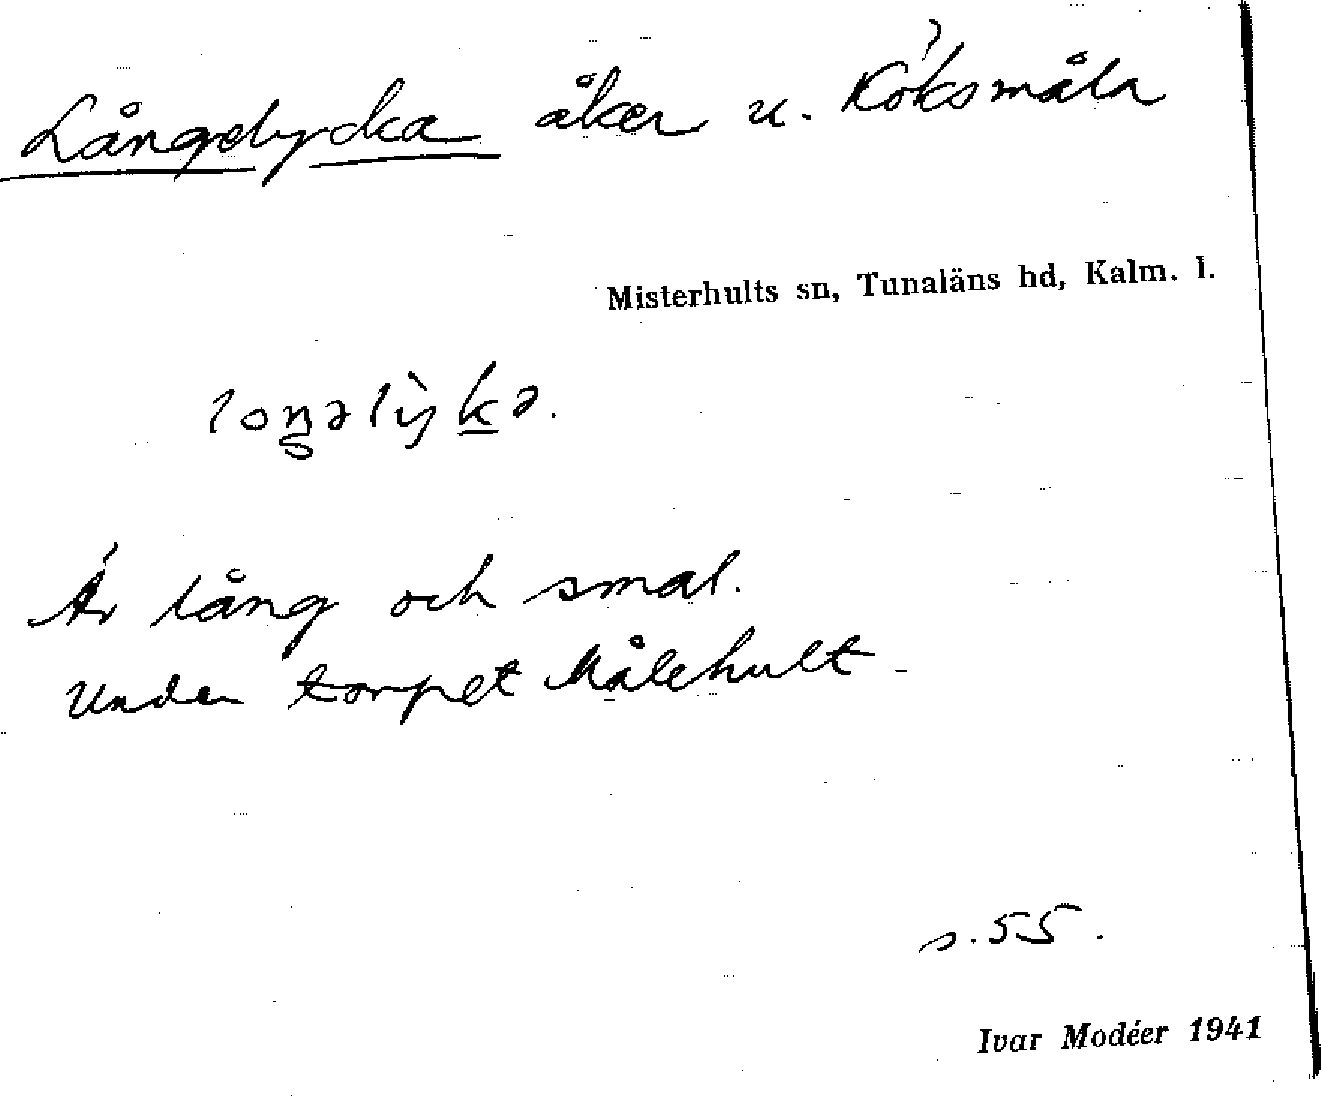 Långelycka åker u. Köksmåla
Misterhults sn, Tunaläns hd, Kalm. l.
loŋəlỳkə.
Är lång och smal.
Under torpet Målehult
s. 55.
Ivar Modéer 1941